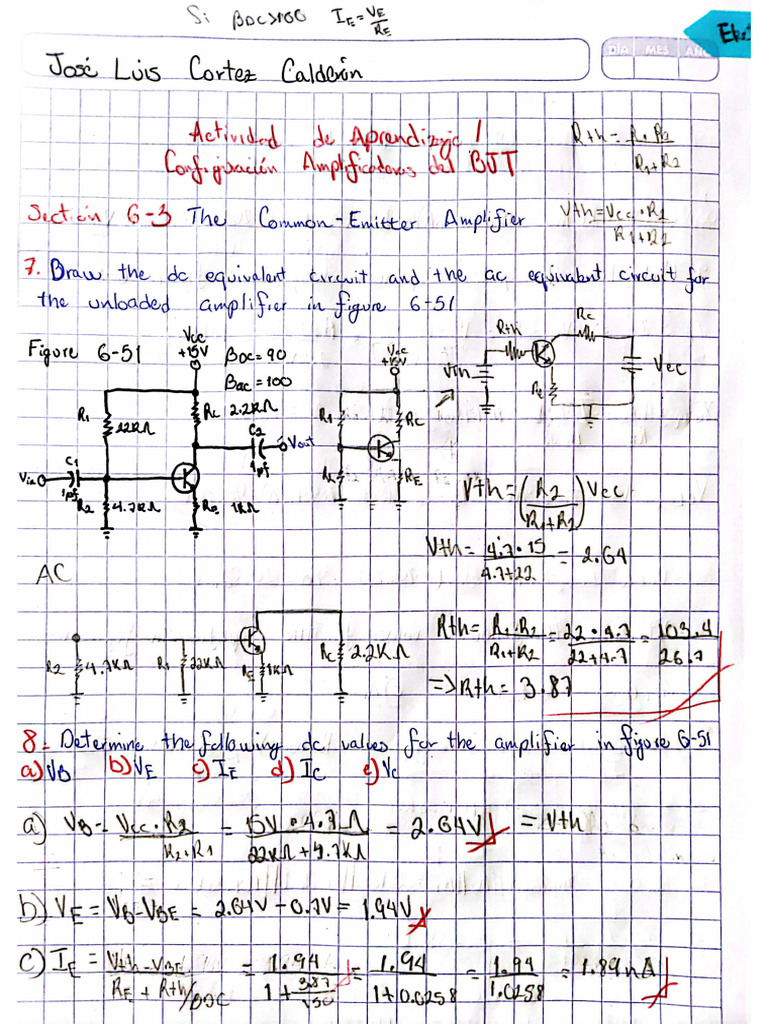 Si βDC>100 IE = VE/RE
Ekt
DÍA MES AÑO
José Luis Cortez Calderón
Actividad de Aprendizaje 1
Configuración Amplificadores del BJT
Rth = R1·R2/R1+R2
Section 6-3 The Common-Emitter Amplifier
Vth = Vcc·R2/R1+R2
7. Draw the dc equivalent circuit and the ac equivalent circuit for
the unloaded amplifier in figure 6-51
Figure 6-51
Vcc
+15V
βDC = 90
βac = 100
R1
22KΩ
Rc 2.2KΩ
C2
1μf
Vout
Vin
C1
1μf
R2
4.7KΩ
RE 1KΩ
Vcc
+15V
R1
RC
R2
RE
Rth
Rc
Vth
RE
Vcc
Vth = (R2/R1+R2) Vcc
Vth = 4.7·15/4.7+22 = 2.64
AC
R2
4.7KΩ
R1
22KΩ
RE
1KΩ
Rc
2.2KΩ
Rth = R1·R2/R1+R2 = 22·4.7/22+4.7 = 103.4/26.7
=> Rth = 3.87
8= Determine the following dc values for the amplifier in figure 6-51
a) VB b) VE c) IE d) IC e) Vc
a) VB = Vcc·R2/R2·R1 = 15V·4.7Ω/22KΩ+4.7KΩ = 2.64V = Vth
b) VE = VB-VBE = 2.64V-0.7V = 1.94V
c) IE = Vth-VBE/RE+Rth/βDC = 1.94/1+3.87/150 = 1.94/1+0.0258 = 1.94/1.0258 = 1.89mA